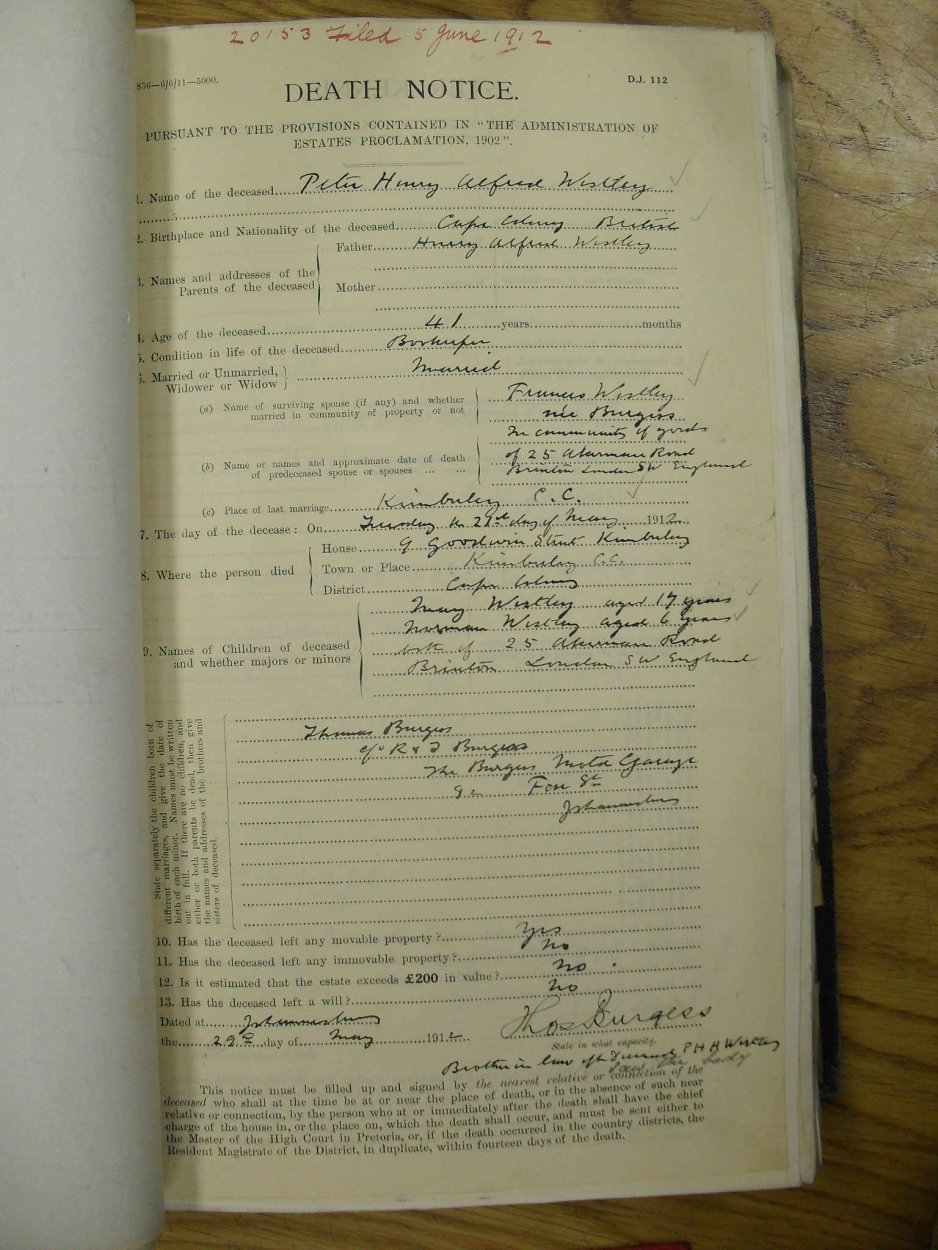 20153 Filed 5 June 1912
856—6/6/11—5000.
D.J. 112
DEATH NOTICE.
PURSUANT TO THE PROVISIONS CONTAINED IN "THE ADMINISTRATION OF
ESTATES PROCLAMATION, 1902".
1. Name of the deceased Peter Henry Alfred Westley
2. Birthplace and Nationality of the deceased Cape Colony British
3. Names and addresses of the Parents of the deceased
Father Henry Alfred Westley
Mother
4. Age of the deceased 41 years months
5. Condition in life of the deceased Bookkeeper
6. Married or Unmarried, Widower or Widow Married
(a) Name of surviving spouse (if any) and whether
married in community of property or not
Frances Westley
née Burgess
In community of goods
of 25 Akerman Road
Brixton London SW England
(b) Name or names and approximate date of death
of predeceased spouse or spouses ... ...
(c) Place of last marriage Kimberley C.C.
7. The day of the decease: On Tuesday the day of May 1912
8. Where the person died
House 9 Goodwin Street Kimberley
Town or Place Kimberley C.C.
District Cape Colony
9. Names of Children of deceased
and whether majors or minors
Mary Westley aged 17 years
Norman Westley aged 6 years
both of 25 Akerman Road
Brixton London SW England
State separately the children born of
different marriages, and give the date of
birth of each minor. Names must be written
out in full. If there are no children, and
either or both parents be dead, then give
the names and addresses of the brothers and
sisters of deceased.
Thomas Burgess
c/o R & T Burgess
The Burgess Motor Garage
Fox St
Johannesburg
10. Has the deceased left any movable property? Yes
11. Has the deceased left any immovable property? No
12. Is it estimated that the estate exceeds £200 in value? No
13. Has the deceased left a will? No
Dated at Johannesburg
the 29th day of May 1912
Thos Burgess
State in what capacity.
Brother in law of P H A Westley
This notice must be filled up and signed by the nearest relative or connection of the
deceased who shall at the time be at or near the place of death, or in the absence of such near
relative or connection, by the person who at or immediately after the death shall have the chief
charge of the house in, or the place on, which the death shall occur, and must be sent either to
the Master of the High Court in Pretoria, or, if the death occurred in the country districts, the
Resident Magistrate of the District, in duplicate, within fourteen days of the death.